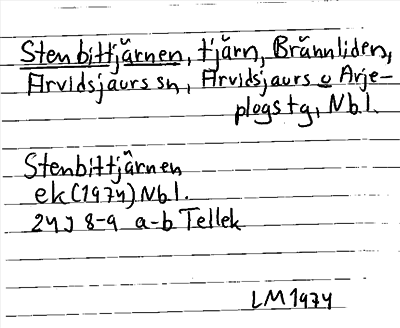 Stenbittjärnen, tjärn, Brännliden,
Arvidsjaurs sn, Arvidsjaurs o Arje-
plogs tg, Nbl.
Stenbittjärnen
ek (1974) Nbl.
24J 8-9 a-b Tellek
LM 1974